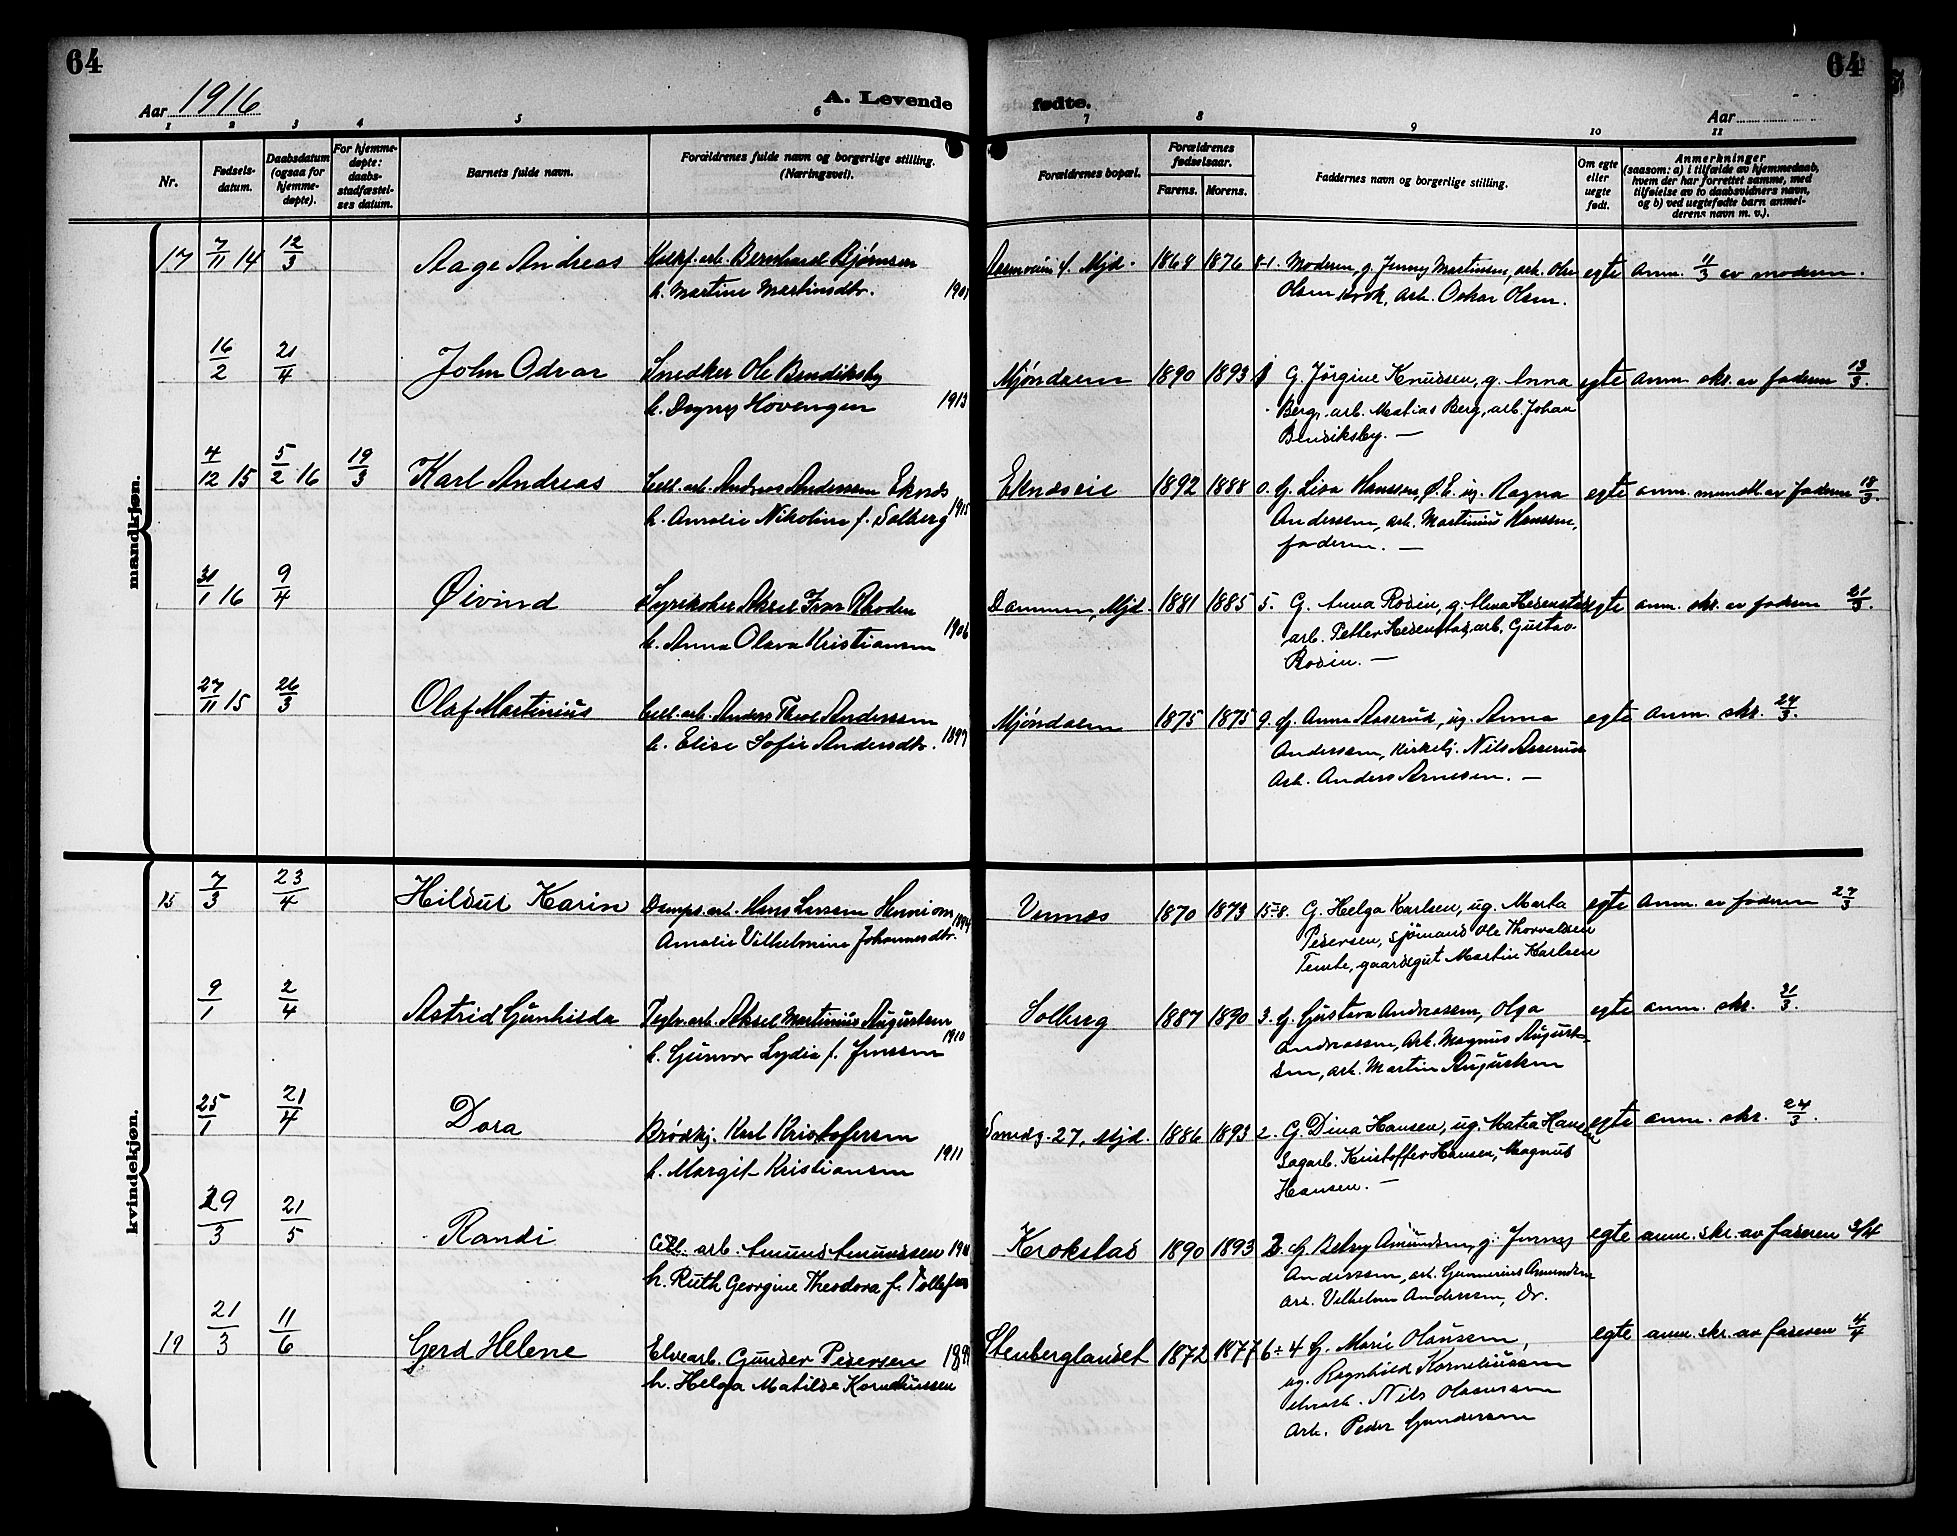 64
64
Aar 1916
A. Levende
fødte.
Aar
1 2 3 4 5 6 7 8 9 10 11
Nr.
Fødsels-
datum.
Daabsdatum
(ogsaa for
hjemme-
døpte).
For hjemme-
døpte:
daabs-
stadfæstel-
ses datum.
Barnets fulde navn.
Forældrenes fulde navn og borgerlige stilling.
(Næringsvei).
Forældrenes bopæl.
Forældrenes
fødselsaar.
Farens. Morens.
Faddernes navn og borgerlige stilling.
Om egte
eller
uegte
født.
Anmerkninger
(saasom: a) i tilfælde av hjemmedaab,
hvem der har forrettet samme, med
tilføielse av to daabsvidners navn,
og b) ved uegtefødte barn anmel-
derens navn m. v.).
mandkjøn.
17 7/11 14 12/3 Aage Andreas arb. Bernhard Bjørnsen
h. Martine Martinsdtr. 1901
Mjd. 1868 1876 8-1. Moderen, g. Jenny Martinsen, arb. Olav
Olsen Krok, arb. Oskar Olsen.
egte anm. 11/3 av moderen.
16/2 21/4 John Odvar Snedker Ole Bendiksby
h. Dagny Hovengen 1913
Mjøndalen 1890 1893 1 G. Jørgine Knudsen, g. Anna
Berg, arb. Matias Berg, arb. Johan
Bendiksby. —
egte anm. skr. av faderen 13/3.
4/12 15 5/2 16 19/3 Karl Andreas Cell. arb. Andreas Anderssen Eknæs
h. Amalie Nikoline f. Solberg 1915
Eknæseie 1892 1888 0. G. Lisa Hanssen, Ø. E. ug. Ragna
Anderssen, arb. Martinius Hanssen,
faderen. —
egte anm. mundtl. av faderen 18/3.
31/1 16 9/4 Øivind Fyrbøter Aksel Ivar Rhodin
h. Anna Olava Kristiansen 1906
Dammen, Mjd. 1881 1885 5. G. Anna Rodin, g. Alma Hedenstad
arb. Petter Hedenstad, arb. Gustav
Rodin. —
egte anm. skr. av faderen 21/3.
27/11 15 26/3 Olaf Martinius Cell. arb. Anders Anderssen
h. Elise Sofie Andersdtr. 1897
Mjøndalen 1875 1875 9. G. Anna Asserud, ug. Anna
Anderssen, kirketj. Nils Asserud
Arb. Anders Arnesen. —
egte anm. skr. 24/3.
kvindekjøn.
15 7/3 23/4 Hildur Karin Damps. arb. Hans Larsen Hennum
Amalie Vilhelmine Johannesdtr. 1894
Vennæs 1870 1873 15-8. G. Helga Karlsen, ug. Marta
Pedersen, sjömand Ole Thorvaldsen
Temte, gaardsgut Martin Karlsen
egte anm. av faderen 27/3
9/1 2/4 Astrid Gunhilda Teglv. arb. Aksel Martinius Augustsen
h. Gunvor Lydia f. Jenssen 1910
Solberg 1887 1890 3. G. Gustava Andreassen, Olga
Andreassen, Arb. Magnus August-
sen, arb. Martin Augustsen
egte anm. skr. 31/3.
25/1 21/4 Dora Brødkj. Karl Kristofersen
h. Margit Kristiansen 1911
Smedg. 27, Mjd. 1886 1893 2. G. Dina Hansen, ug. Matea Hansen
Sagarb. Kristoffer Hansen, Magnus
Hansen. —
egte anm. skr. 24/3.
29/3 21/5 Randi Cell. arb. Amund Amundsen
h. Ruth Georgine Theodora f. Tollefsen
Krokstad 1890 1893 2. G. Betzy Amundsen, g. Jenny
Anderssen, arb. Gunnerius Amundsen
arb. Vilhelm Anderssen, Dr.
egte anm. skr. av faderen 3/4
19 21/3 11/6 Gerd Helene Elvearb. Gunder Pedersen 1899
h. Helga Matilde Korneliussen
Stenberglandet 1872 1877 6÷4 G. Marie Olausen,
ug. Ragnhild Korneliussen
Nils Olaussen
arb. Peder Gundersen
egte anm. skr. av faderen 4/4